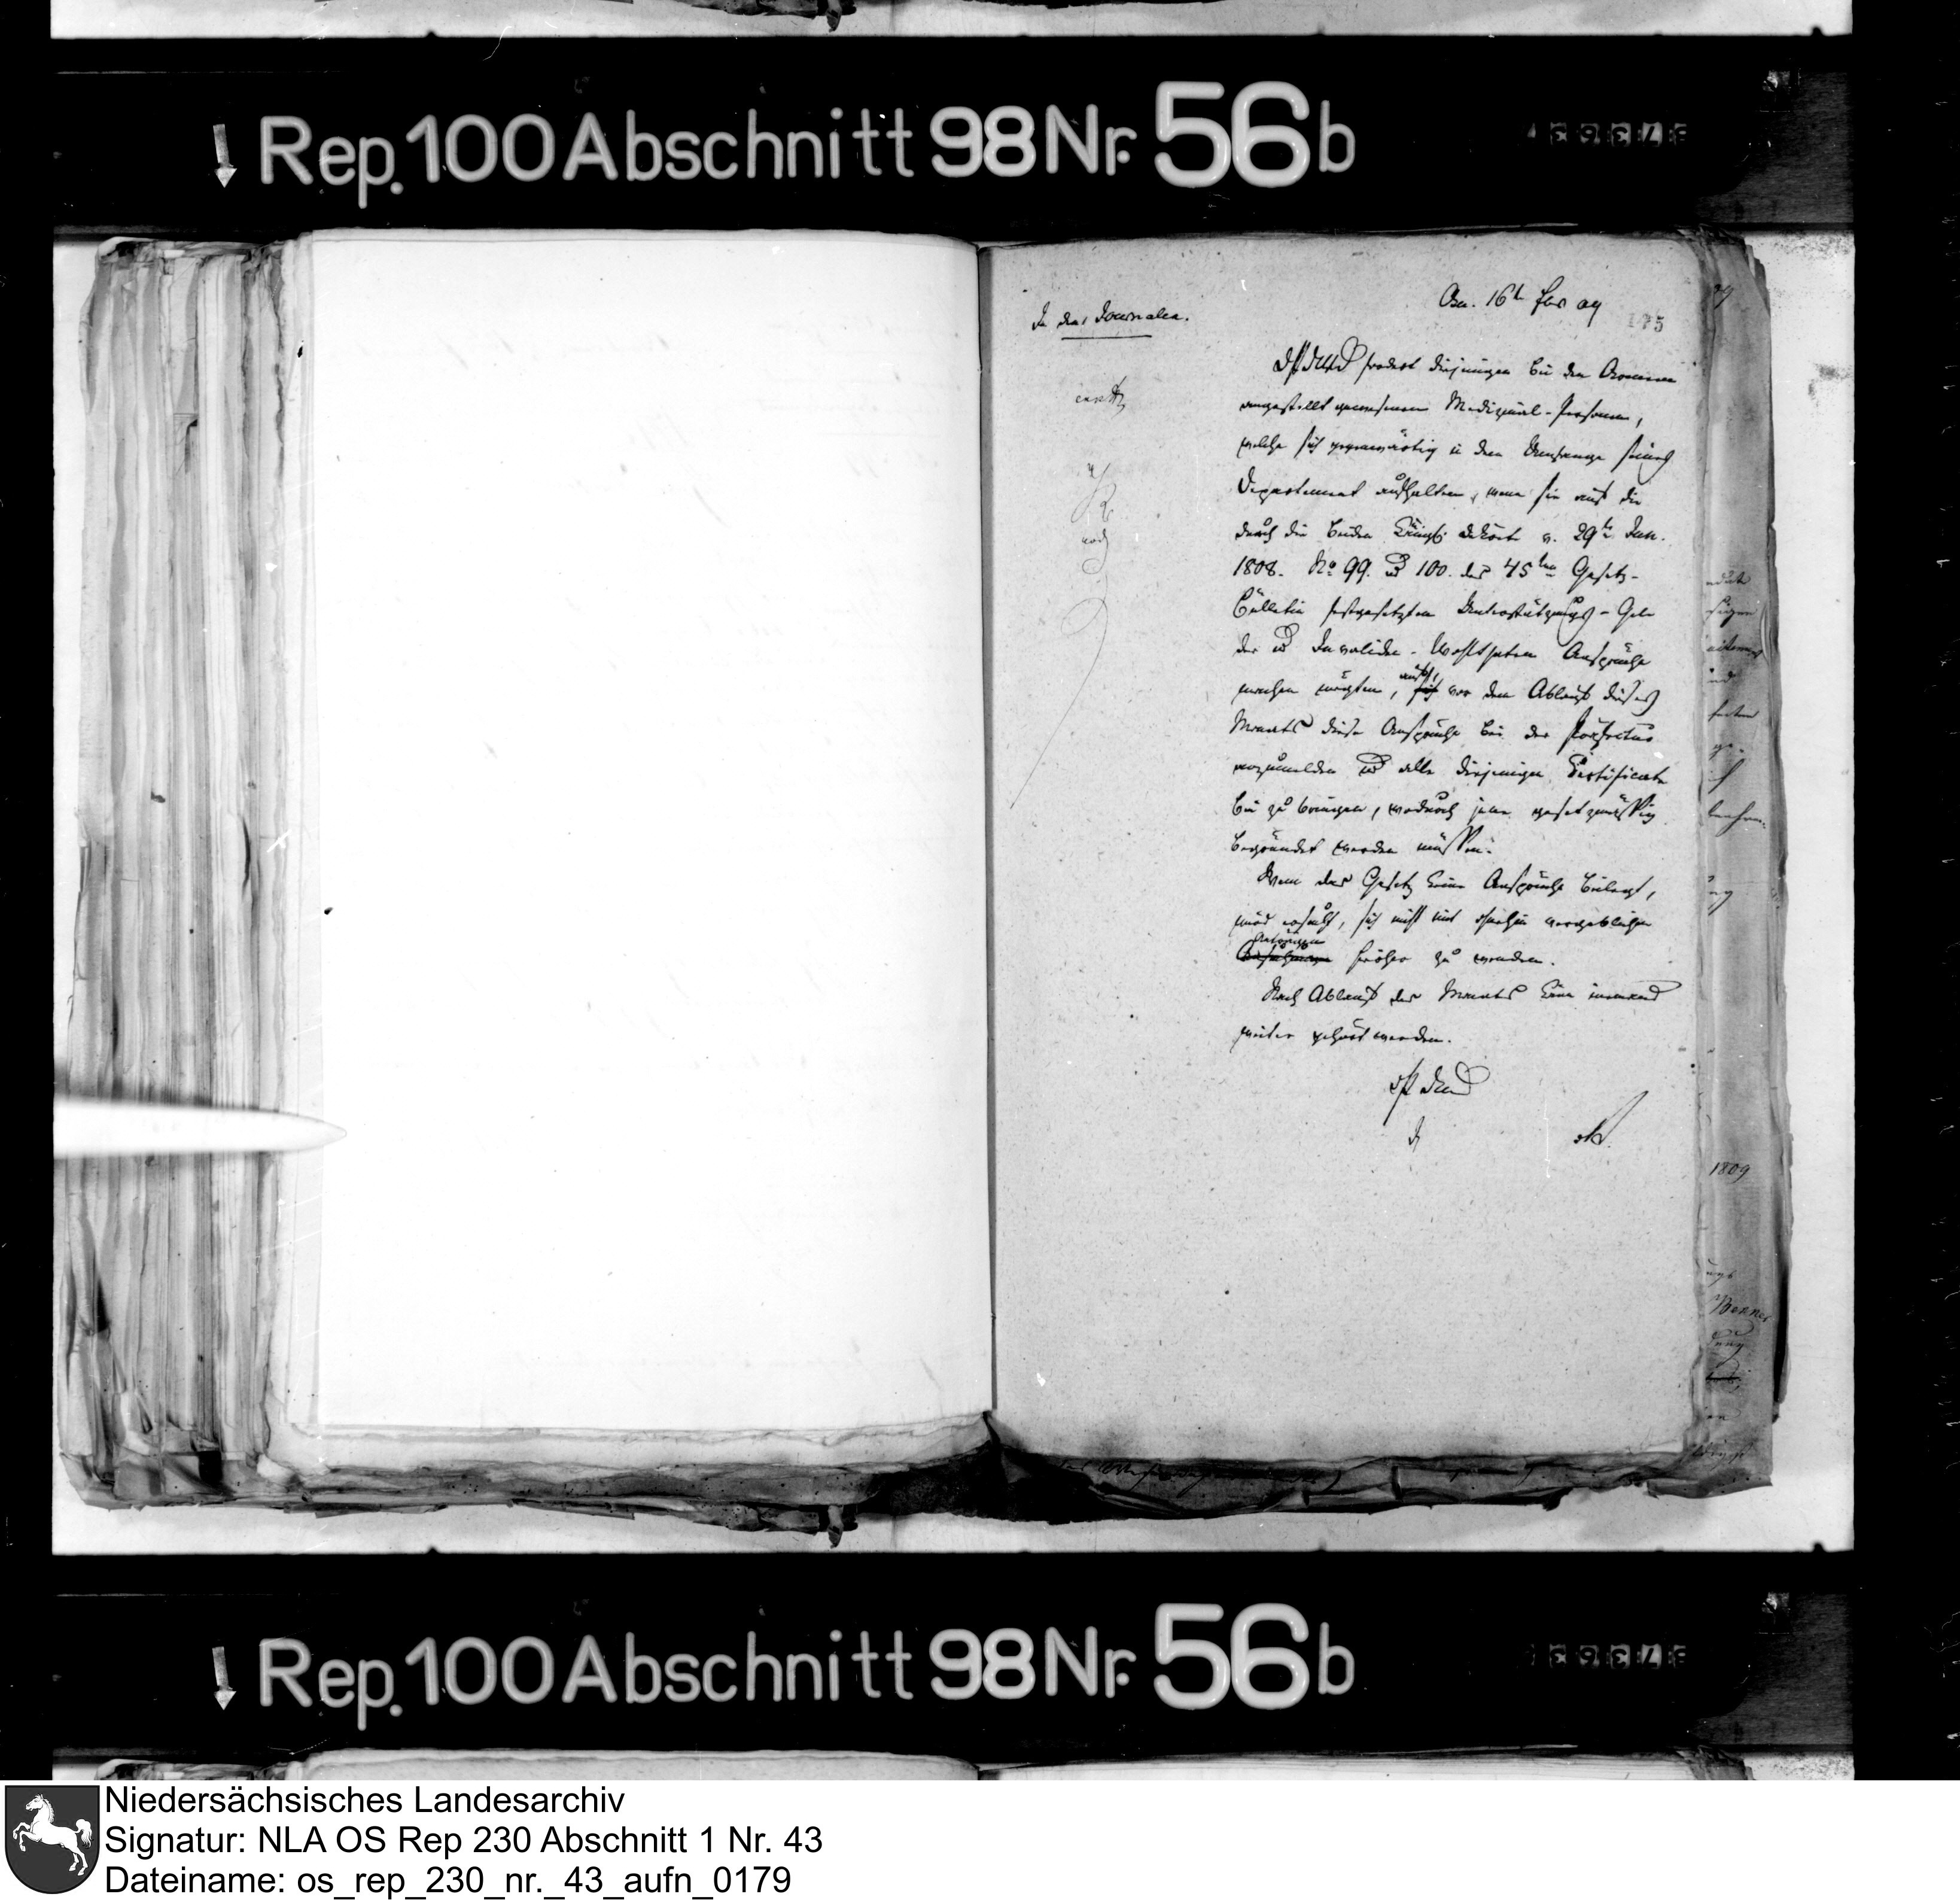 Rep. 100 Abschnitt 98 Nr. 56 b
In das Journal
Osn. 16t Febr 09
175
fordert diejenigen bei den Armeen
angestellt gewesenen Medizinal-Personen,
welche sich gegenwärtig in dem Umfange seines
Departement aufhalten, wenn sie auf die
durch die beiden Königl. Dekrete v. 29ten Jan.
1808. No 99. u 100. des 45ten Gesetz-
Bülletin festgesetzten Unterstützungs-Gel
der u Invaliden-Wohlthaten Ansprüche
machen mögten, auf, vor dem Ablauf dieses
Monats diese Ansprüche bei der Präfectur
anzumelden u alle diejenigen Certificate
bei zu bringen, wodurch jene gesetzmässig
begründet werden müssen.
Wem das Gesetz keine Ansprüche beilegt,
wird ersucht, sich nicht mit vergeblichen
Anträgen hieher zu wenden.
Nach Ablauf des Monats kann niemand
weiter gehört werden.
1809
Rep. 100 Abschnitt 98 Nr. 56 b
Niedersächsisches Landesarchiv
Signatur: NLA OS Rep 230 Abschnitt 1 Nr. 43
Dateiname: os_rep_230_nr._43_aufn_0179